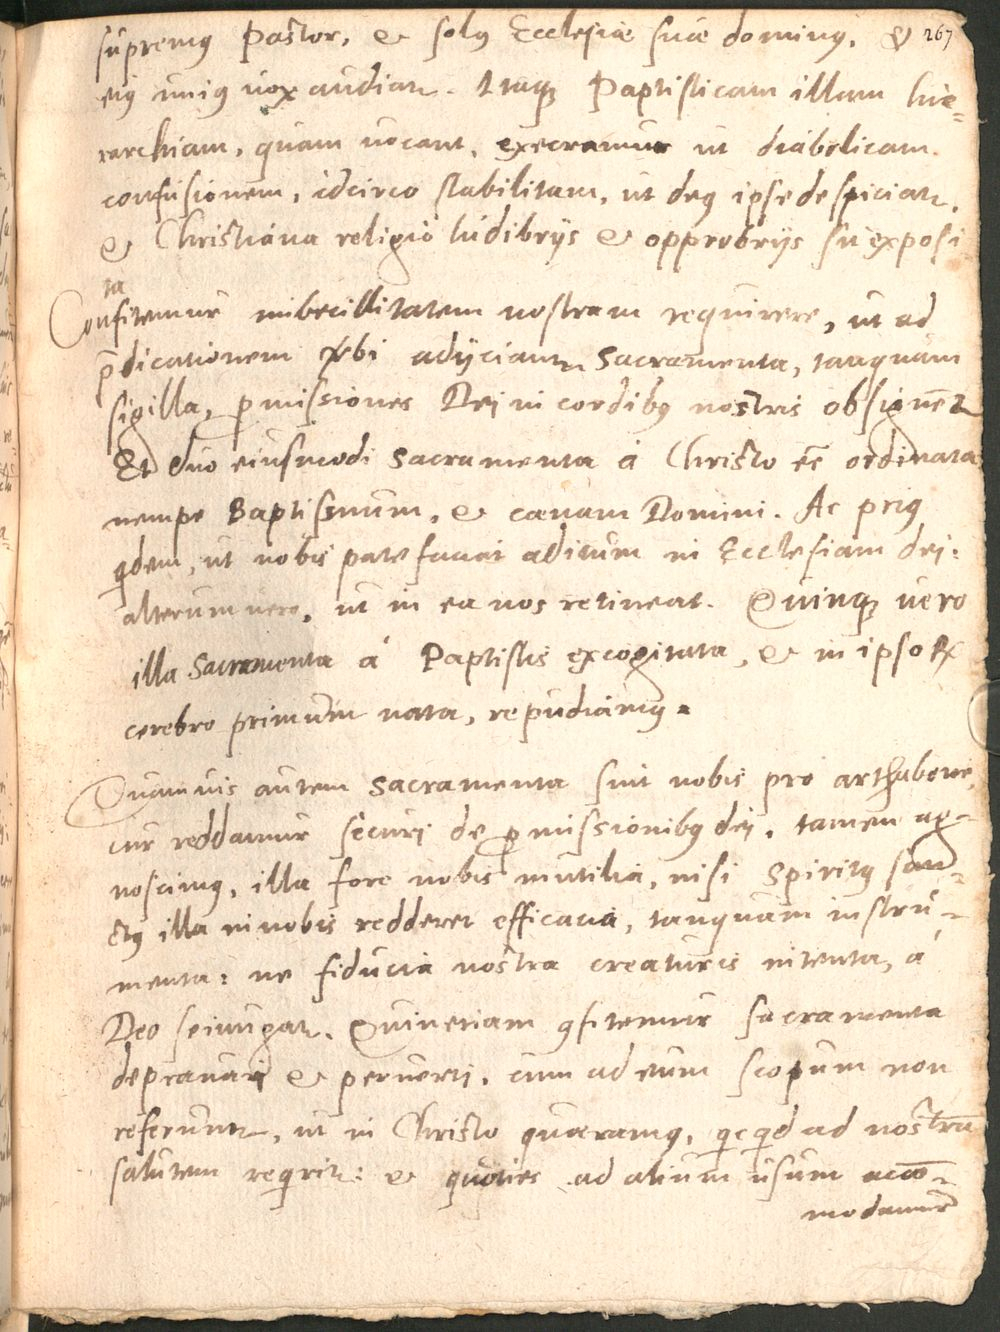 supremꝰ Pastor, & solꝰ Ecclesiæ suæ dominꝰ, & 267
eiꝰ uniꝰ uox audiatr. Itaqꝫ Papisticam illam hie-
rarchiam, quam uocant, execramur ut diabolicam
confusionem, idcirco stabilitam, ut deꝰ ipse despiciatr,
& Christiana religio ludibrijs & opprobrijs sit exposi
ta
Confitemur imbecillitatem nostram requirere, ut ad
p̄dicationem ubi adijciantr Sacramenta, tanquam
sigilla, ꝓmissiones Dei in cordibꝰ nostris obsignēt
Et duo eiusmodi Sacramenta á Christo eē ordinata
nempe Baptismum, & cænam Domini. Ac priꝰ
qdem, ut nobis patefaciat aditum in Ecclesiam dei:
alterum uero, ut in ea nos retineat. Quinqꝫ uero
illa Sacramenta á Papistis excogitata, & in ipsoꝝ
cerebro primum nata, repudiamꝰ.
Quamuis autem Sacramenta sint nobis pro arrhabone,
cur reddamur securi de ꝓmissionibꝰ dei, tamen ag-
noscimꝰ, illa fore nobis inutilia, nisi Spiritꝰ san-
ctꝰ illa in nobis redderet efficacia, tanquam instru-
menta: ne fiducia nostra creaturis intenta, á
Deo seiungatr. Quinetiam ꝯfitemur sacramenta
deprauari & peruerti, cum ad eum scopum non
referuntr, ut in Christo quæramꝰ, qcqd ad nostrā
salutem reqritr: & quoties ad alium usum accō-
modamur